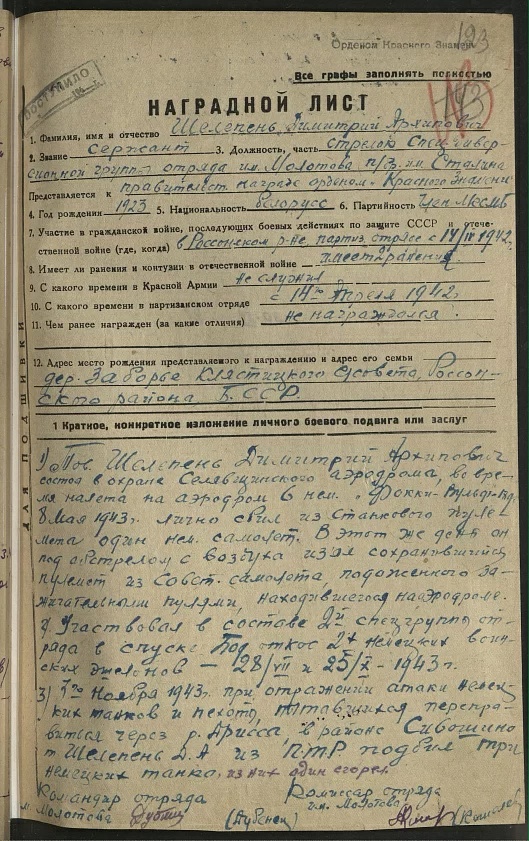 Орденом Красного Знамени
193
Все графы заполнять полностью
ПОСТУПИЛО
НАГРАДНОЙ ЛИСТ
1. Фамилия, имя и отчество Шелепень Димитрий Архипович
2. Звание сержант 3. Должность, часть стрелок Спец. дивер-
сионной группы отряда им. Молотова п/з. им. Сталина
Представляется к правительст. награде орденом "Красного Знамени
4. Год рождения 1923 5. Национальность белорусс 6. Партийность член ЛКСМБ
7. Участие в гражданской войне, последующих боевых действиях по защите СССР и отече-
ственной войне (где, когда) в Россонском р-не, партиз. отряде с 14/IV 1942.
8. Имеет ли ранения и контузии в отечественной войне имеет ранение
9. С какого времени в Красной Армии не служил
10. С какого времени в партизанском отряде с 14го Апреля 1942г
11. Чем ранее награжден (за какие отличия) не награждался.
12. Адрес место рождения представляемого к награждению и адрес его семьи
дер. Заборье Клястицкого с/совета, Россон-
ского района, Б.ССР.
1 Краткое, конкретное изложение личного боевого подвига или заслуг
1) Тов. Шелепень Димитрий Архипович
состоя в охране Селявщинского аэродрома, во вре-
мя налета на аэродром 6 нем. "Фокки-Вульф-
8 мая 1943г. лично сбил из станкового пуле-
мета один нем. самолет. В этот же день он
под обстрелом с воздуха изял сохранившийся
пулемет из Совет. самолета, подоженного за-
жигательными пулями, находившегося на аэродроме.
2. Участвовал в составе 2й спецгруппы от-
ряда в спуске под откос 2х немецких воин-
ских эшелонов — 28/VII и 25/X - 1943г.
3) 7го Ноября 1943г. при отражении атаки немец-
ких танков и пехоты, пытавшихся перепра-
виться через р. Дрисса в районе Сивошино
т. Шелепень Д.А из ПТР подбил три
немецких танка, из них один сгорел.
Командир отряда Комиссар отряда
м. Молотова (Дубенец) им. Молотова
ДЛЯ ПОДШИВКИ